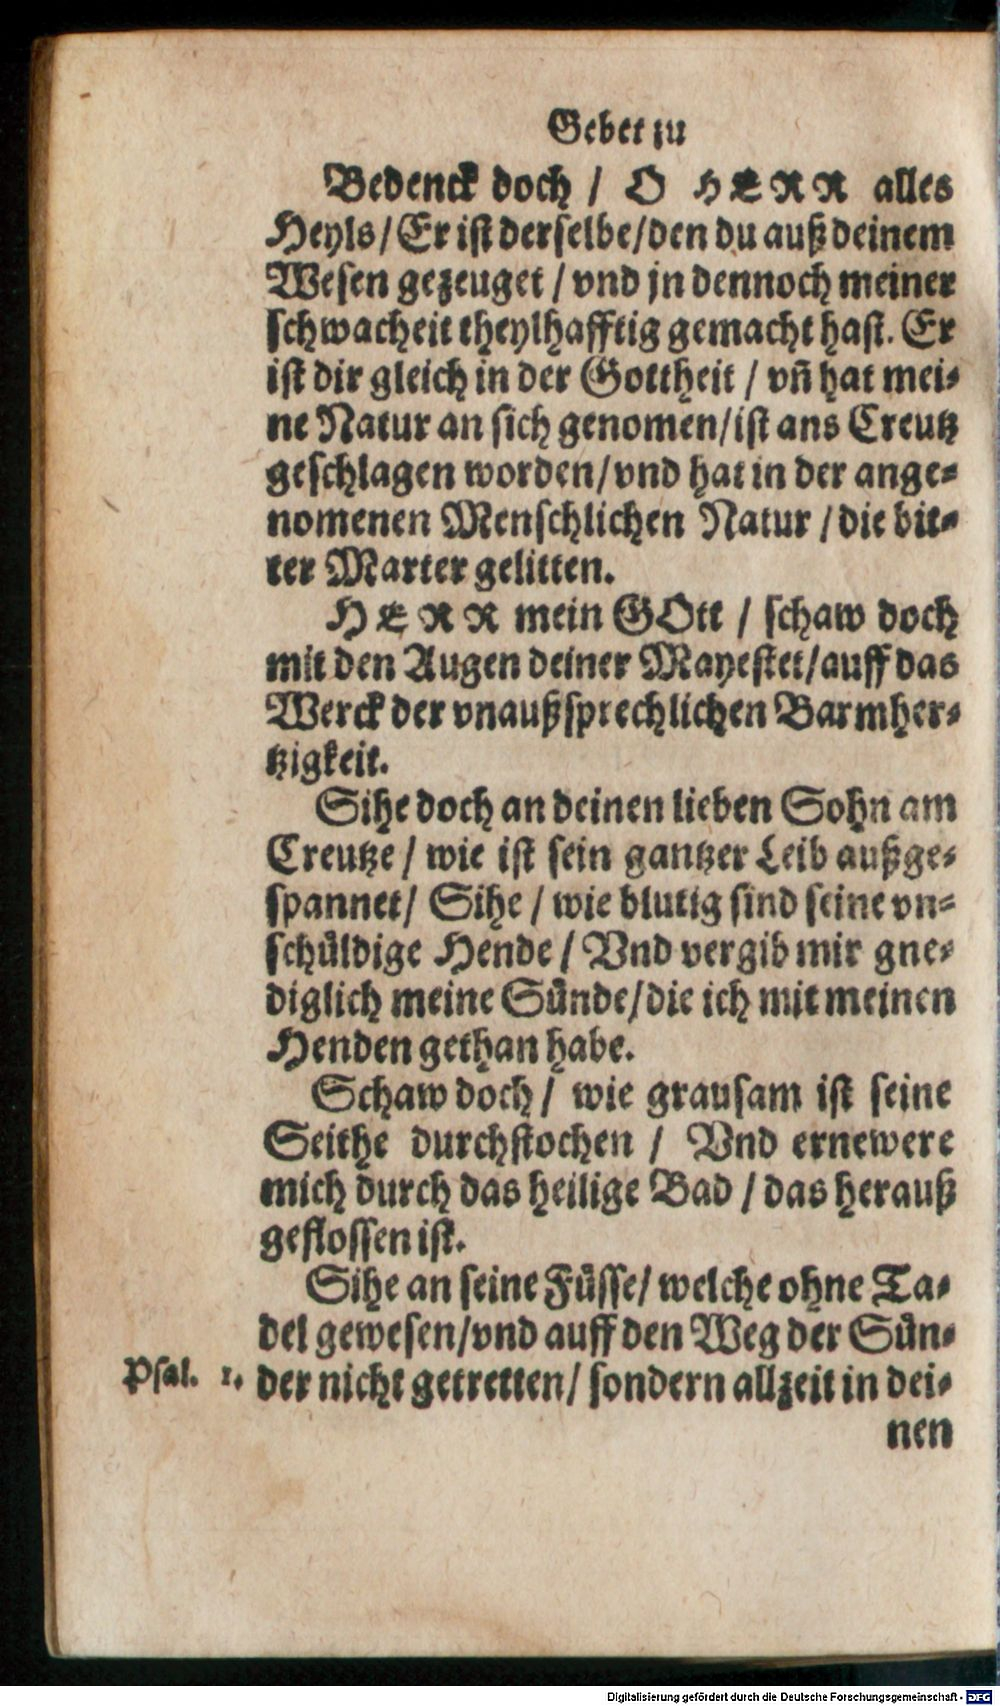 Gebet zu
Bedenck doch / O HERR alles
Heyls / Er ist derselbe / den du auß deinem
Wesen gezeuget / vnd jn dennoch meiner
schwacheit theylhafftig gemacht hast. Er
ist dir gleich in der Gottheit / vn̄ hat mei-
ne Natur an sich genomen / ist ans Creutz
geschlagen worden / vnd hat in der ange-
nomenen Menschlichen Natur / die bit-
ter Marter gelitten.
HERR mein GOtt / schaw doch
mit den Augen deiner Mayestet / auff das
Werck der vnaußsprechlichen Barmher-
tzigkeit.
Sihe doch an deinen lieben Sohn am
Creutze / wie ist sein gantzer Leib außge-
spannet / Sihe / wie blutig sind seine vn-
schůldige Hende / Vnd vergib mir gne-
diglich meine Sůnde / die ich mit meinen
Henden gethan habe.
Schaw doch / wie grausam ist seine
Seithe durchstochen / Vnd ernewere
mich durch das heilige Bad / das herauß
geflossen ist.
Sihe an seine Fůsse / welche ohne Ta-
del gewesen / vnd auff den Weg der Sůn-
Psal. 1. der nicht getretten / sondern allzeit in dei-
nen
Digitalisierung gefördert durch die Deutsche Forschungsgemeinschaft - DFG